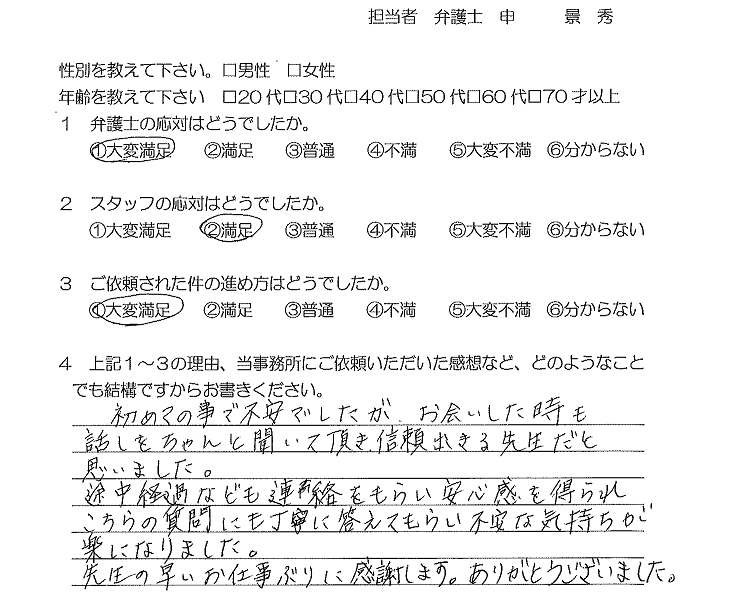 担当者　弁護士　申　　景　秀
性別を教えて下さい。□男性　□女性
年齢を教えて下さい　□20代□30代□40代□50代□60代□70才以上
１　弁護士の応対はどうでしたか。
①大変満足　②満足　③普通　④不満　⑤大変不満　⑥分からない
２　スタッフの応対はどうでしたか。
①大変満足　②満足　③普通　④不満　⑤大変不満　⑥分からない
３　ご依頼された件の進め方はどうでしたか。
①大変満足　②満足　③普通　④不満　⑤大変不満　⑥分からない
４　上記１～３の理由、当事務所にご依頼いただいた感想など、どのようなこと
でも結構ですからお書きください。
初めての事で不安でしたが、お会いした時も
話しをちゃんと聞いて頂き、信頼出きる先生だと
思いました。
途中経過なども連絡をもらい安心感を得られ
こちらの質問にも丁寧に答えてもらい不安な気持ちが
楽になりました。
先生の早いお仕事ぶりに感謝します。ありがとうございました。